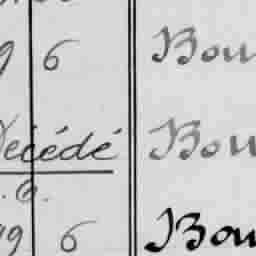 9 6 Bou
Décédé Bou
. O.
19 6 Bou